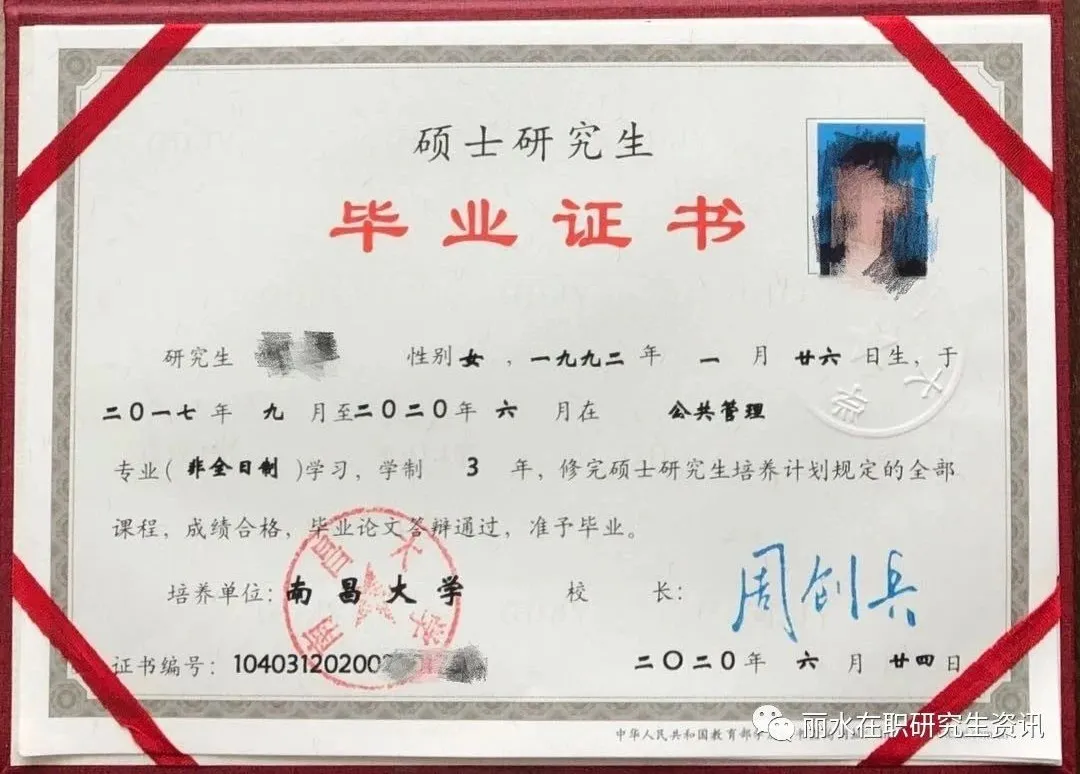 硕士研究生
毕业证书
研究生 性别 女 ,一九九二 年 一 月 廿六 日生,于
二〇一七 年 九 月至 二〇二〇 年 六 月在 公共管理
专业( 非全日制 )学习,学制 3 年,修完硕士研究生培养计划规定的全部
课程,成绩合格,毕业论文答辩通过,准予毕业。
南昌大学
培养单位: 南昌大学 校 长: 周创兵
证书编号: 10403120200 二〇二〇 年 六 月 廿四 日
中华人民共和国教育部学
丽水在职研究生资讯